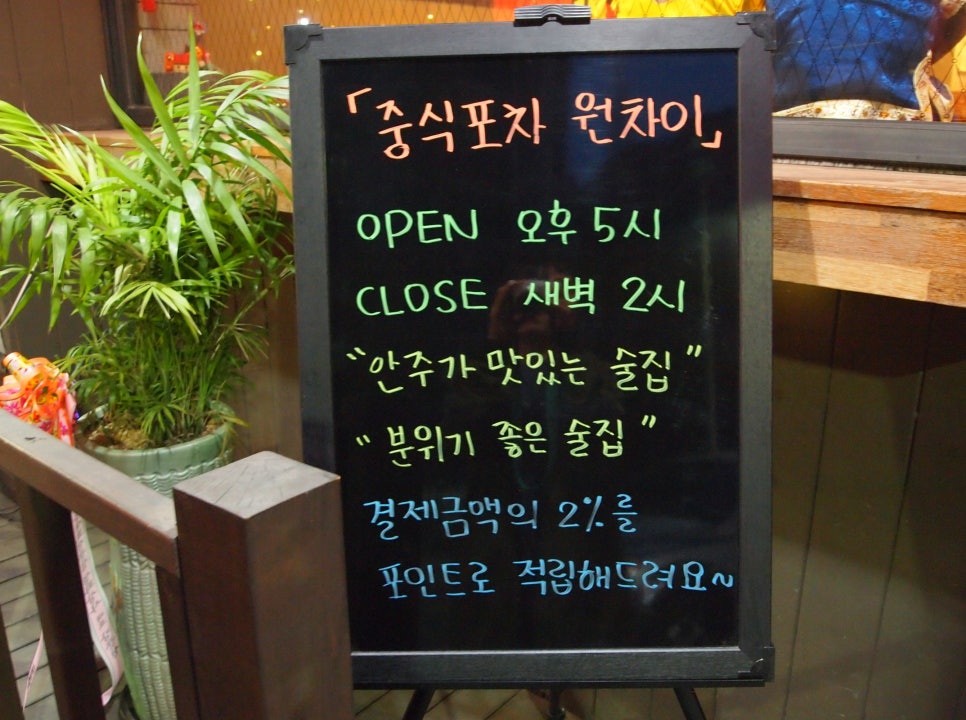 「중식포차 원차이」
OPEN 오후 5시
CLOSE 새벽 2시
"안주가 맛있는 술집"
"분위기 좋은 술집"
결제금액의 2%를
포인트로 적립해드려요~